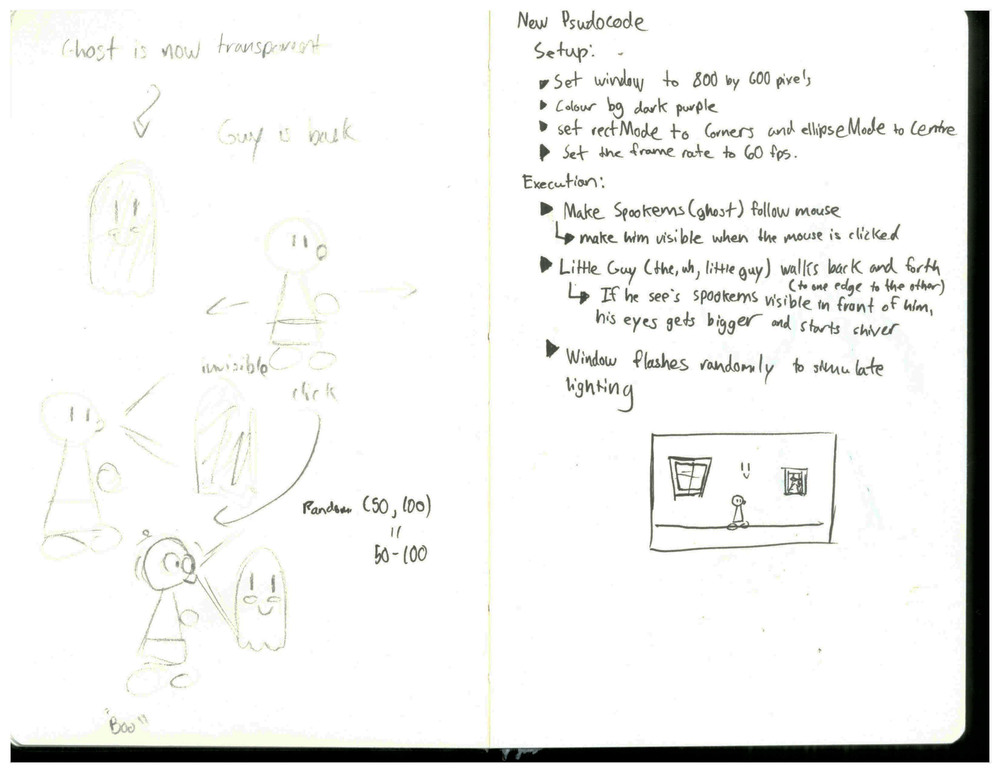 Ghost is now transparent
Guy is back
invisible
click
Random (50, 100)
=
50-100
"Boo"
New Psudocode
Setup:
Set window to 800 by 600 pixels
Colour bg dark purple
set rectMode to Corners and ellipseMode to Centre
Set the frame rate to 60 fps.
Execution:
Make Spookems (ghost) follow mouse
make him visible when the mouse is clicked
Little Guy (the, uh, little guy) walks back and forth
(to one edge to the other)
If he see's spookems visible in front of him,
his eyes gets bigger and starts shiver
Window flashes randomly to simulate
lighting